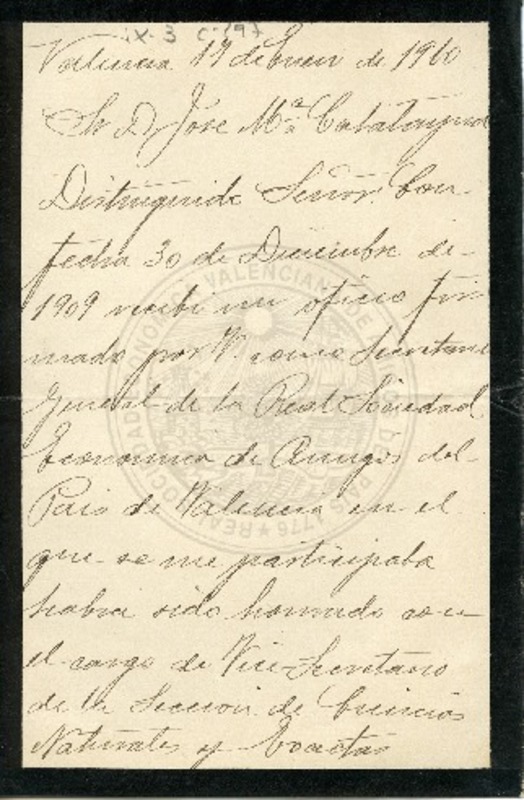 IX-3 C-197
Valencia 19 de Enero de 1910
Sr D. Jose Mª Calatayud
Distinguido Señor: Con
fecha 30 de Diciembre de
1909 recibi un oficio fir
mado por V. como Secretario
General de la Real Sociedad
Economica de Amigos del
Pais de Valencia en el
que se me participaba
habia sido honrado con
el cargo de Vice-Secretario
de la Seccion de Ciencias
Naturales y Exactas
REAL SOCIEDAD ECONOMICA VALENCIANA DE AMIGOS DEL PAIS 1776